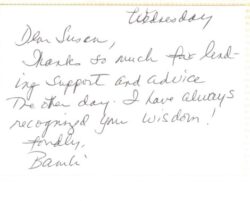 Wednesday
Dear Susan,
Thanks so much for lend-
ing support and advice
the other day. I have always
recognized your wisdom!
fondly,
Bambi